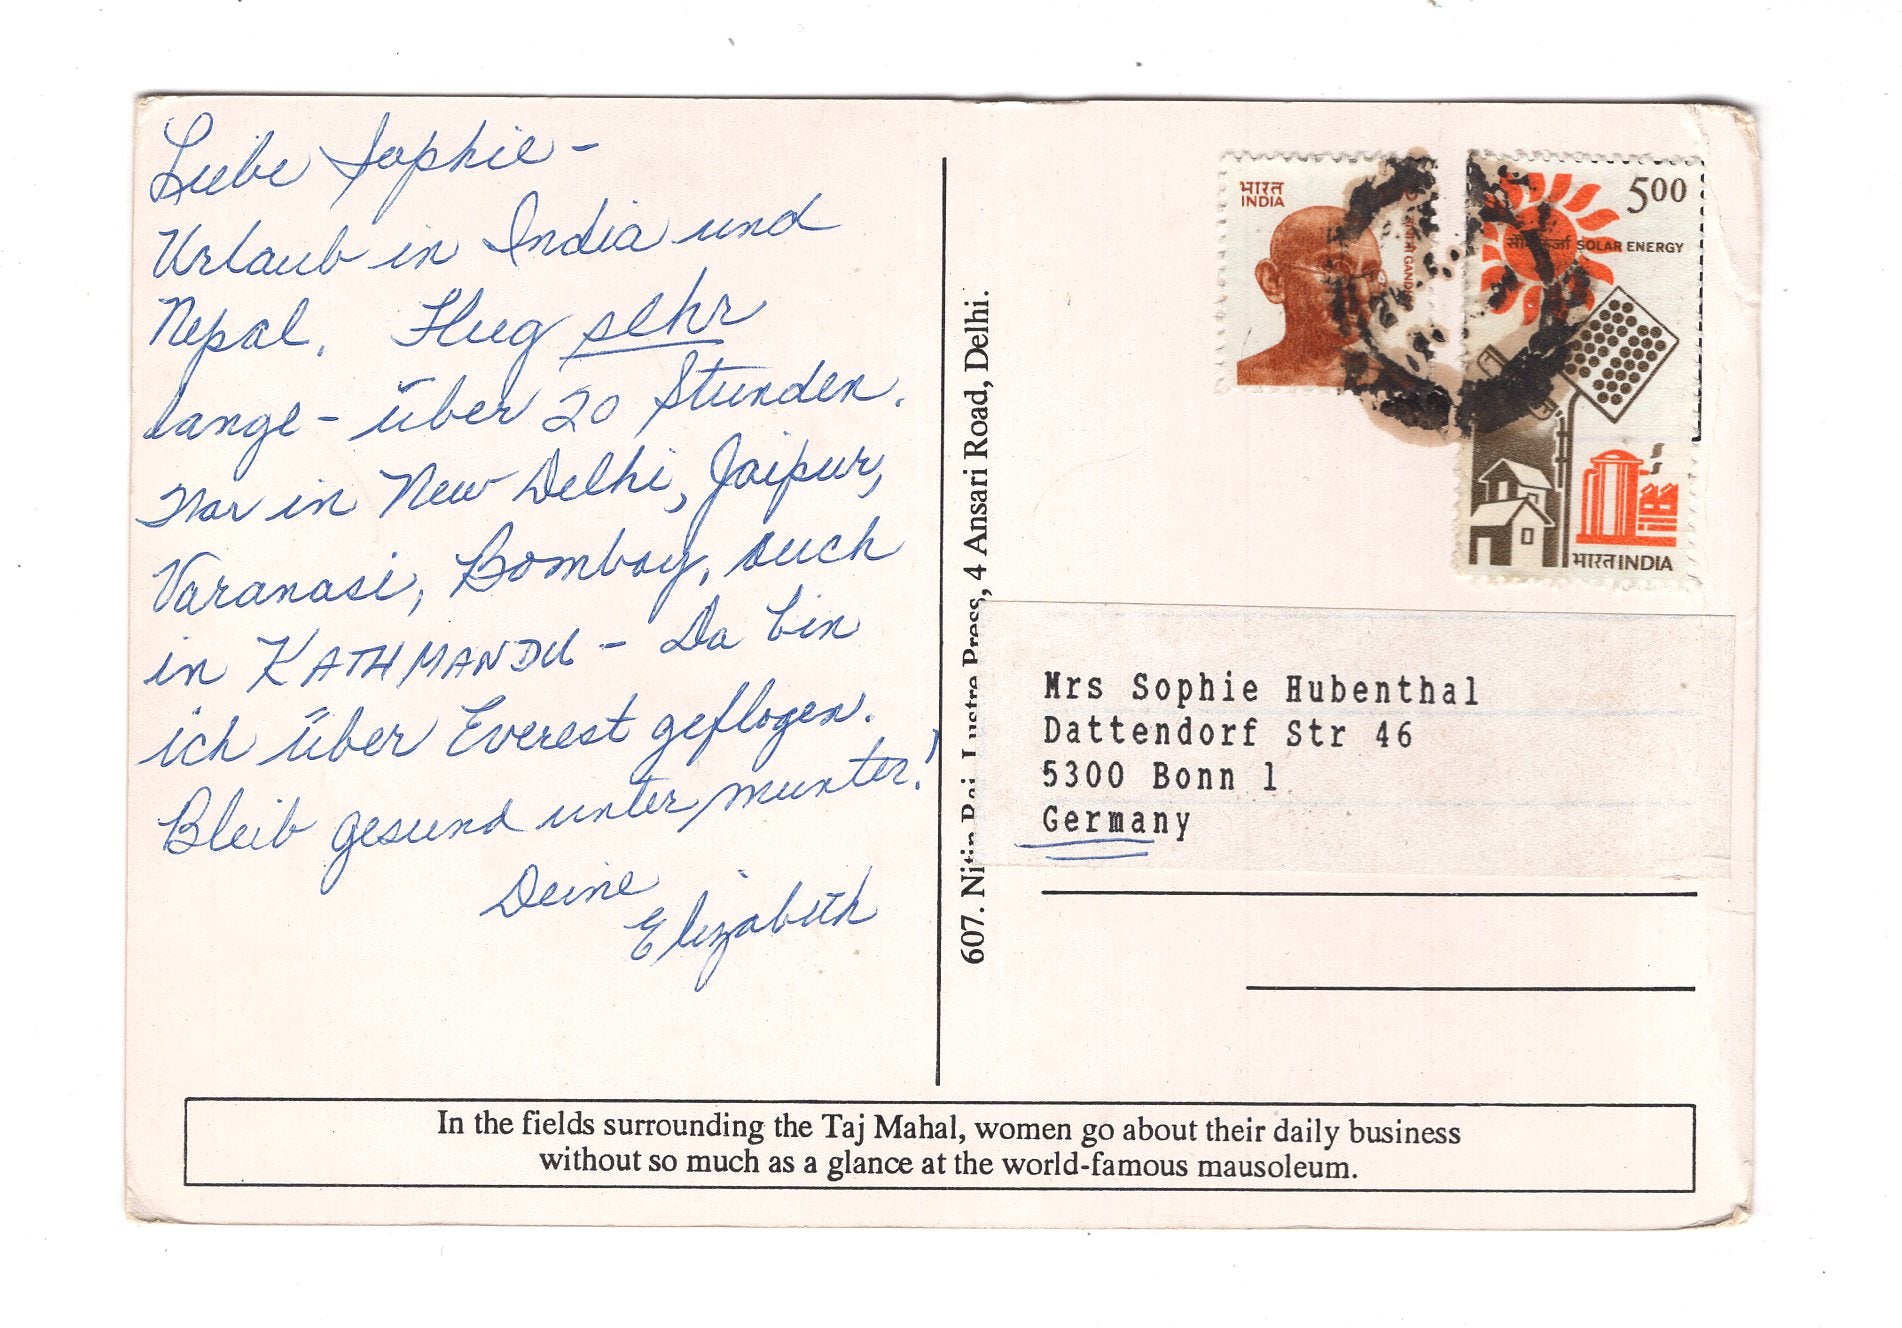 Liebe Sophie -
Urlaub in India und
Nepal. Flug sehr
lange - über 20 Stunden.
War in New Delhi, Jaipur,
Varanasi, Bombay, auch
in KATHMANDU - Da bin
ich über Everest geflogen.
Bleib gesund unter munter!
Deine
Elizabeth
607. Nitin Raj Lustre Press, 4 Ansari Road, Delhi.
भारत
INDIA
GANDHI
500
सौर ऊर्जा SOLAR ENERGY
भारत INDIA
Mrs Sophie Hubenthal
Dattendorf Str 46
5300 Bonn 1
Germany
In the fields surrounding the Taj Mahal, women go about their daily business
without so much as a glance at the world-famous mausoleum.